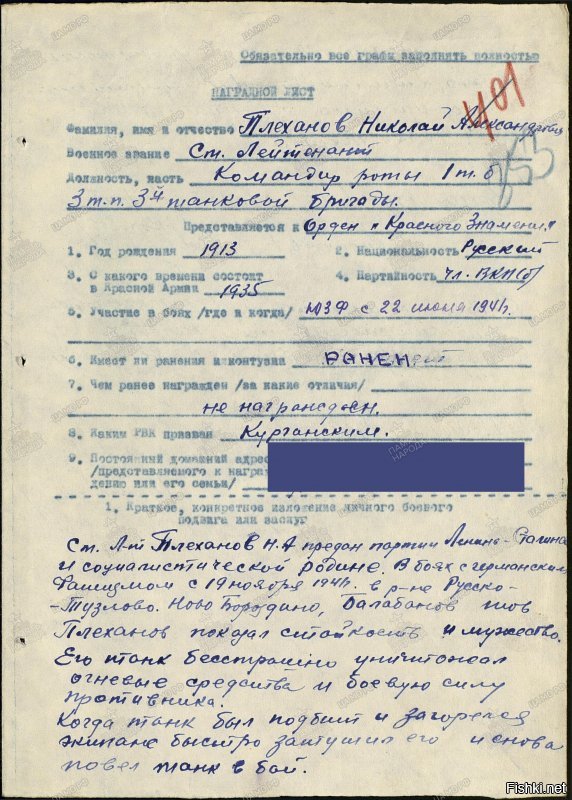 Обязательно все графы заполнять полностью
401
НАГРАДНОЙ ЛИСТ
Фамилия, имя и отчество Плеханов Николай Александров
Военное звание Ст. Лейтенант
Должность, часть Командир роты 1 т. б
3 т.п. 3й танковой бригады.
Представляется к Орден "Красного Знамени"
1. Год рождения 1913 2. Национальность Русский
3. С какого времени состоит в Красной Армии 1935 4. Партийность чл. ВКП(б)
5. Участие в боях /где и когда/ ЮЗФ с 22 июня 1941г.
6. Имеет ли ранения и контузии РАНЕН
7. Чем ранее награжден /за какие отличия/
не награжден.
8. Каким РВК призван Курганским.
9. Постоянный домашний адрес
/представляемого к награ
дению или его семьи/
1. Краткое, конкретное изложение личного боевого
подвига или заслуг
Ст. Л-й Плеханов Н.А предан партии Ленина-Сталина
и социалистической родине. В боях с германским
Фашизмом с 19 ноября 1941г. в р-не Русско
-Тузлово. Ново Бородино, Балабанов тов
Плеханов показал стойкость и мужество.
Его танк бесстрашно уничтожал
огневые средства и боевую силу
противника.
Когда танк был подбит и загорелся
экипаж быстро затушил его и снова
повел танк в бой.
ПАМЯТЬ НАРОДА
ЦАМО.РФ
Fishki.net